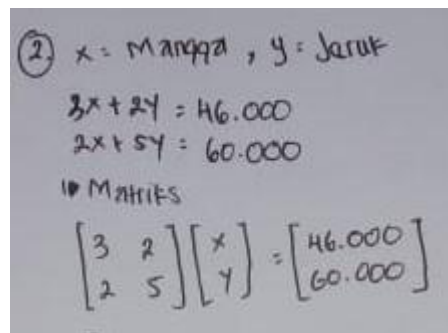 2 x = Mangga , y = Jeruk
3x + 2y = 46.000
2x + 5y = 60.000
Matriks
[3 2] [x] = [46.000]
[2 5] [y] [60.000]